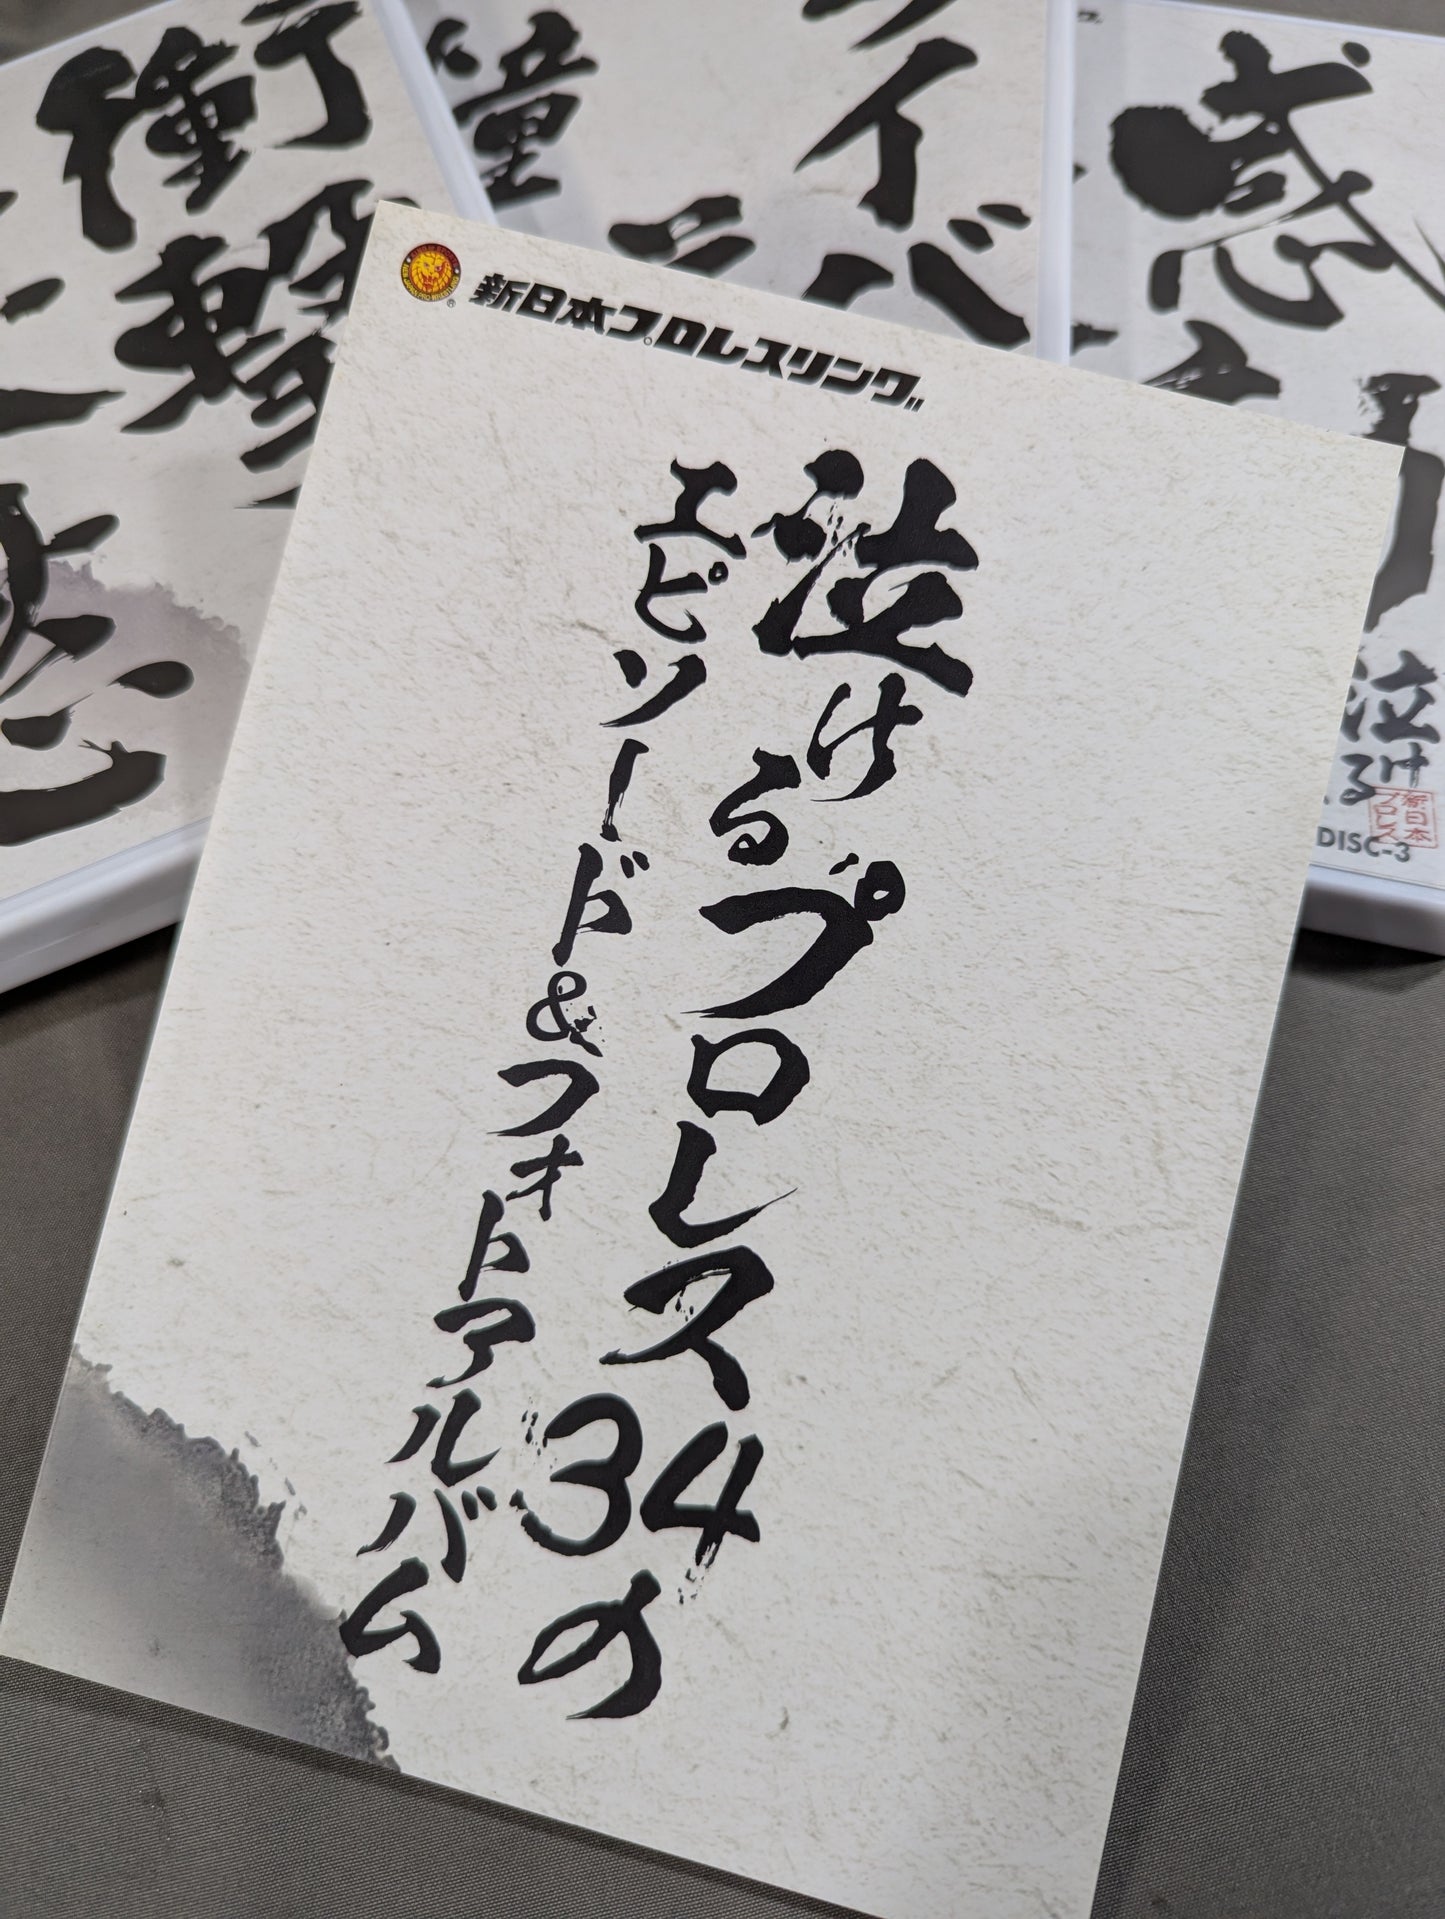 新日本プロレスリング
泣けるプロレス34の
エピソード&フォトアルバム
衝撃
憧
イバ
感
泣
ける
新日本
プロレス
DISC-3